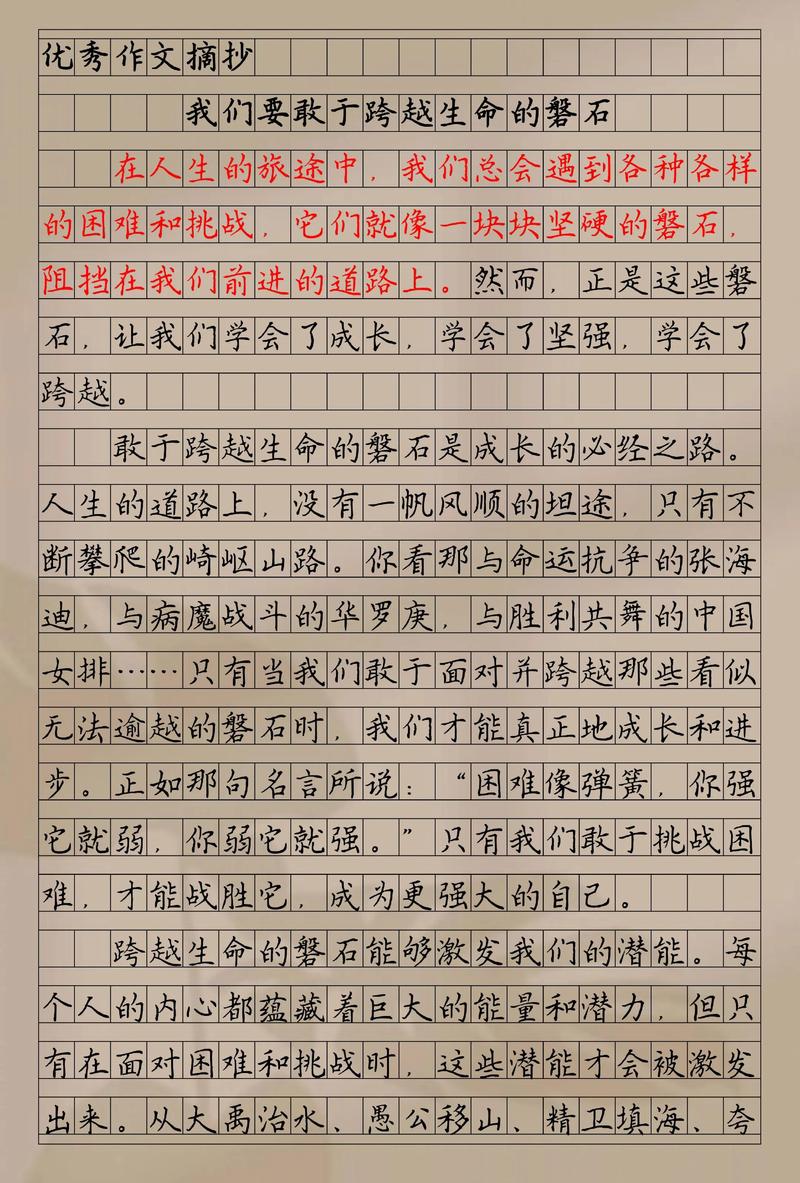 优秀作文摘抄
我们要敢于跨越生命的磐石
在人生的旅途中，我们总会遇到各种各样
的困难和挑战，它们就像一块块坚硬的磐石，
阻挡在我们前进的道路上。然而，正是这些磐
石，让我们学会了成长，学会了坚强，学会了
跨越。
敢于跨越生命的磐石是成长的必经之路。
人生的道路上，没有一帆风顺的坦途，只有不
断攀爬的崎岖山路。你看那与命运抗争的张海
迪，与病魔战斗的华罗庚，与胜利共舞的中国
女排……只有当我们敢于面对并跨越那些看似
无法逾越的磐石时，我们才能真正地成长和进
步。正如那句名言所说：“困难像弹簧，你强
它就弱，你弱它就强。”只有我们敢于挑战困
难，才能战胜它，成为更强大的自己。
跨越生命的磐石能够激发我们的潜能。每
个人的内心都蕴藏着巨大的能量和潜力，但只
有在面对困难和挑战时，这些潜能才会被激发
出来。从大禹治水、愚公移山、精卫填海、夸